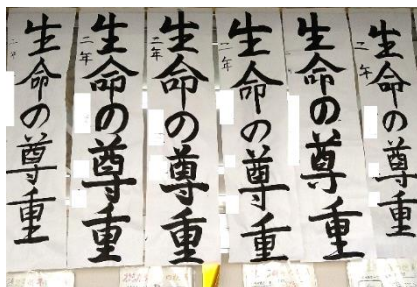 生命の尊重
二年
生命の尊重
二年
生命の尊重
二年
生命の尊重
二年
生命の尊重
二年
生命の尊重
二年